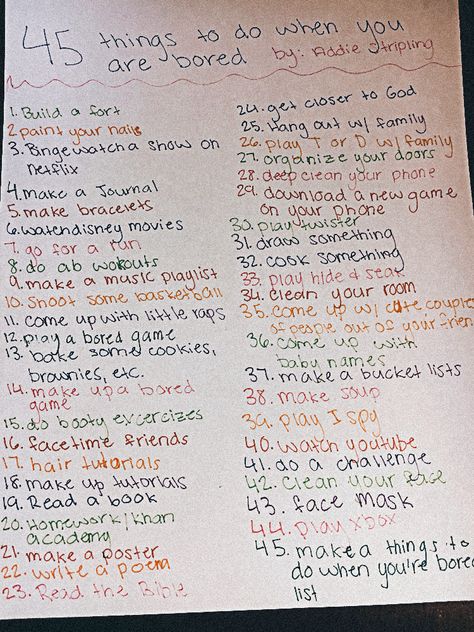 45 things to do when you
are bored by: Addie Stripling
1. Build a fort
2 paint your nails
3. Bingewatch a show on
netflix
4. make a Journal
5. make bracelets
6. watch disney movies
7. go for a run
8. do ab workouts
9. make a music playlist
10. Shoot some basketball
11. come up with little raps
12. play a bored game
13. bake some cookies,
brownies, etc.
14. make up a bored
game
15. do booty excercizes
16. facetime friends
17. hair tutorials
18. make up tutorials
19. Read a book
20. Homework/khan
academy
21. make a poster
22. write a poem
23. Read the Bible
24. get closer to God
25. Hang out w/ family
26. play T or D w/ family
27. organize your doors
28. deep clean your phone
29. download a new game
on your phone
30. play twister
31. draw something
32. cook something
33. play hide & seak
34. clean your room
35. come up w/ cute
of people out of your frien
36. come up with
baby names
37. make a bucket lists
38. make soup
39. play I spy
40. watch youtube
41. do a challenge
42. clean your face
43. face mask
44. play xbox
45. make a things to
do when you're bored
list